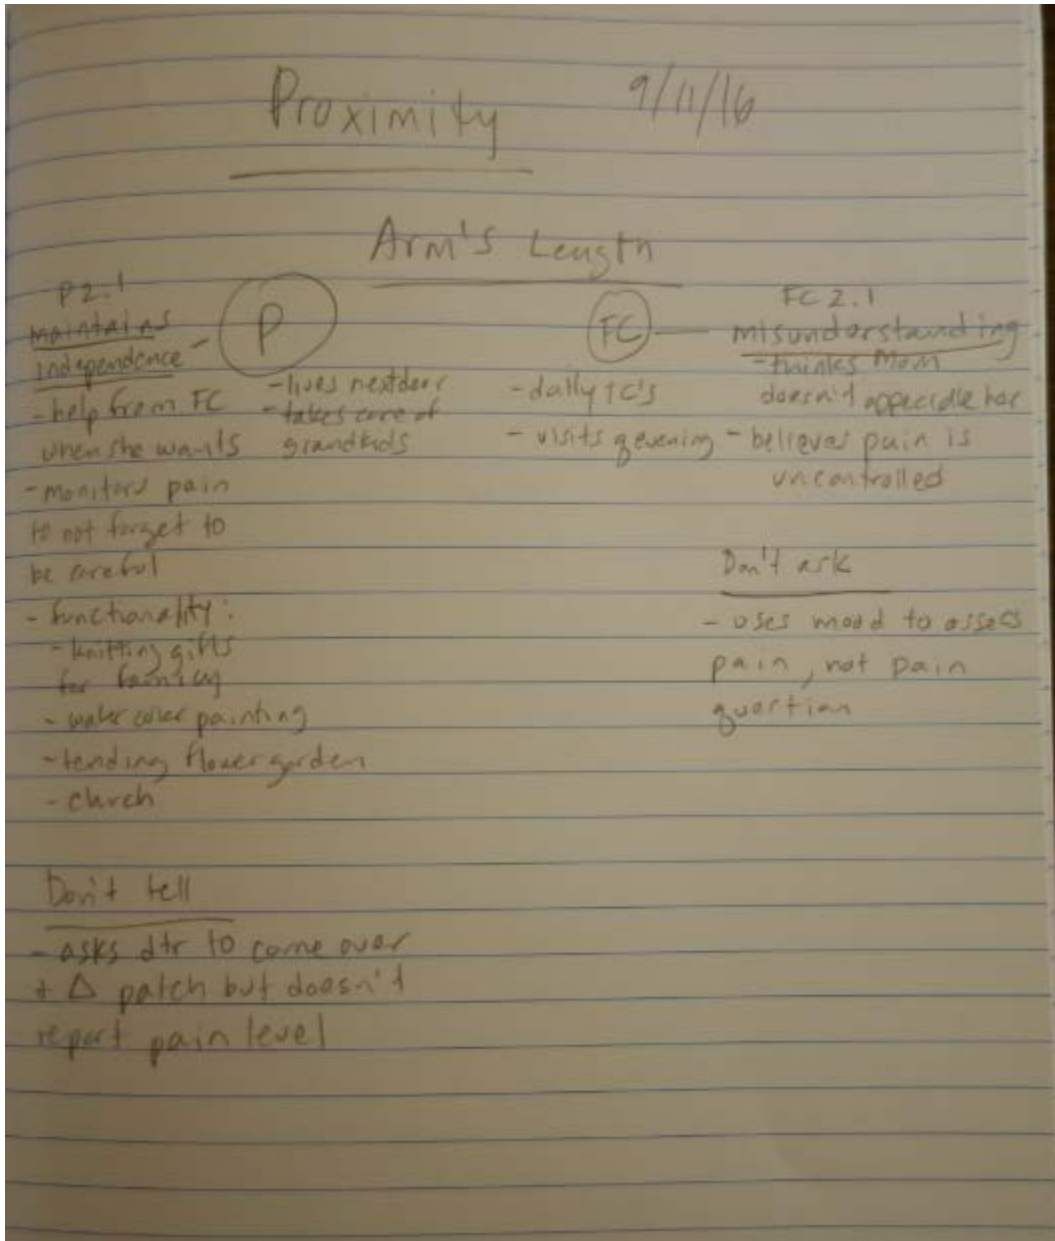 Proximity 9/11/16
Arm's Length
P2.1
maintains
independence -
P
- help from FC
when she wants
- monitors pain
to not forget to
be careful
- functionality:
- knitting gifts
for family
- water color painting
- tending flower garden
- church
- lives nextdoor
- takes care of
grandkids
FC
- daily TC's
- visits q evening
FC 2.1
misunderstanding
- thinks Mom
doesn't appreciate her
- believes pain is
uncontrolled
Don't ask
- uses mood to assess
pain, not pain
question
Don't tell
- asks dtr to come over
+ Δ patch but doesn't
report pain level